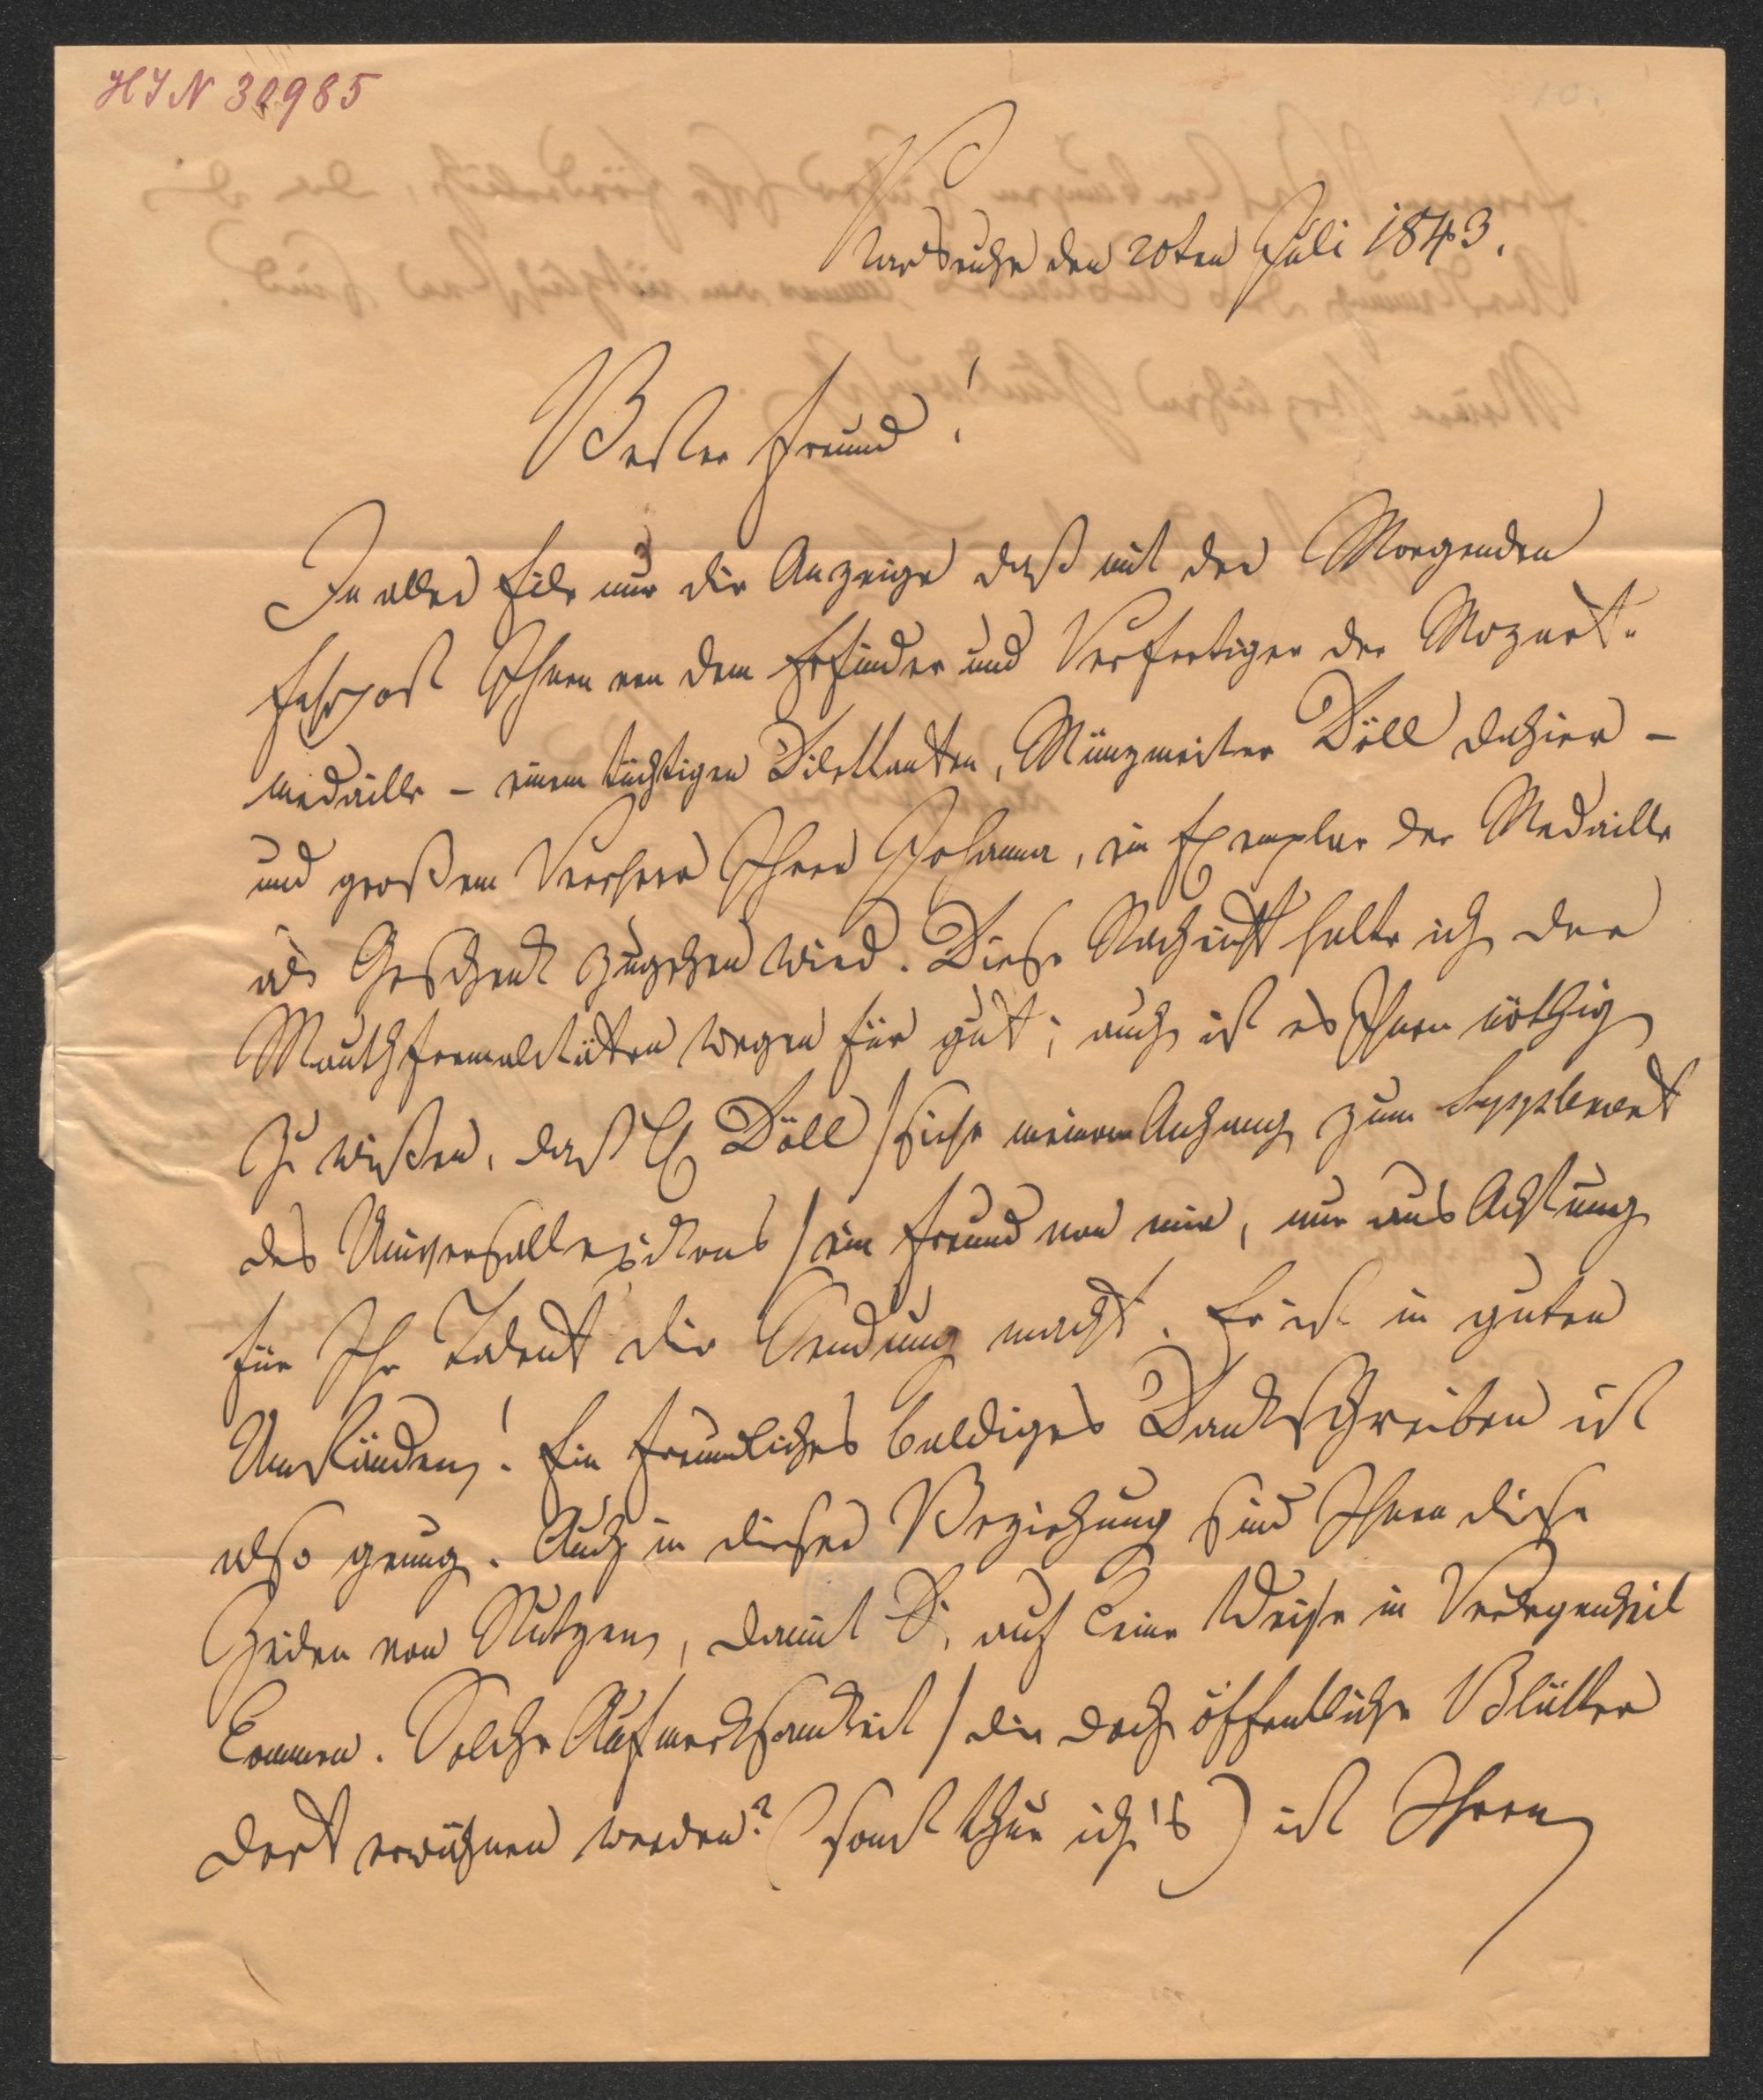 HIN 30985
Karlsruhe den 20ten Juli 1843.
Bester Freund!
In aller Eile nur die Anzeige daß mit der Morgenden
Fahrpost Ihnen von dem Erfinder und Verfertiger der Mozart-
medaille – einem tüchtigen Dilettanten, Münzmeister Döll dahier –
und großem Verehrer Ihrer Johanna, ein Exemplar der Medaille
als Geschenk zugehen wird. Diese Nachricht halte ich der
Mauthformalitäten wegen für gut; auch ist es Ihnen nöthig
zu wißen, daß H Döll / siehe meinem Anhang zum Supplement
des Universallexikons / ein Freund von mir, nur aus Achtung
für Ihr Talent die Sendung macht. Er ist in guten
Umständen! Ein freundliches baldiges Dankschreiben ist
also genug. Auch in dieser Beziehung sind Ihnen diese
Zeilen von Nutzen, damit S. auf keine Weise in Verlegenheit
kommen. Solche Aufmerksamkeit / die doch öffentliche Blätter
dort erwähnen werden? (sonst thue ich's) ist Ihren